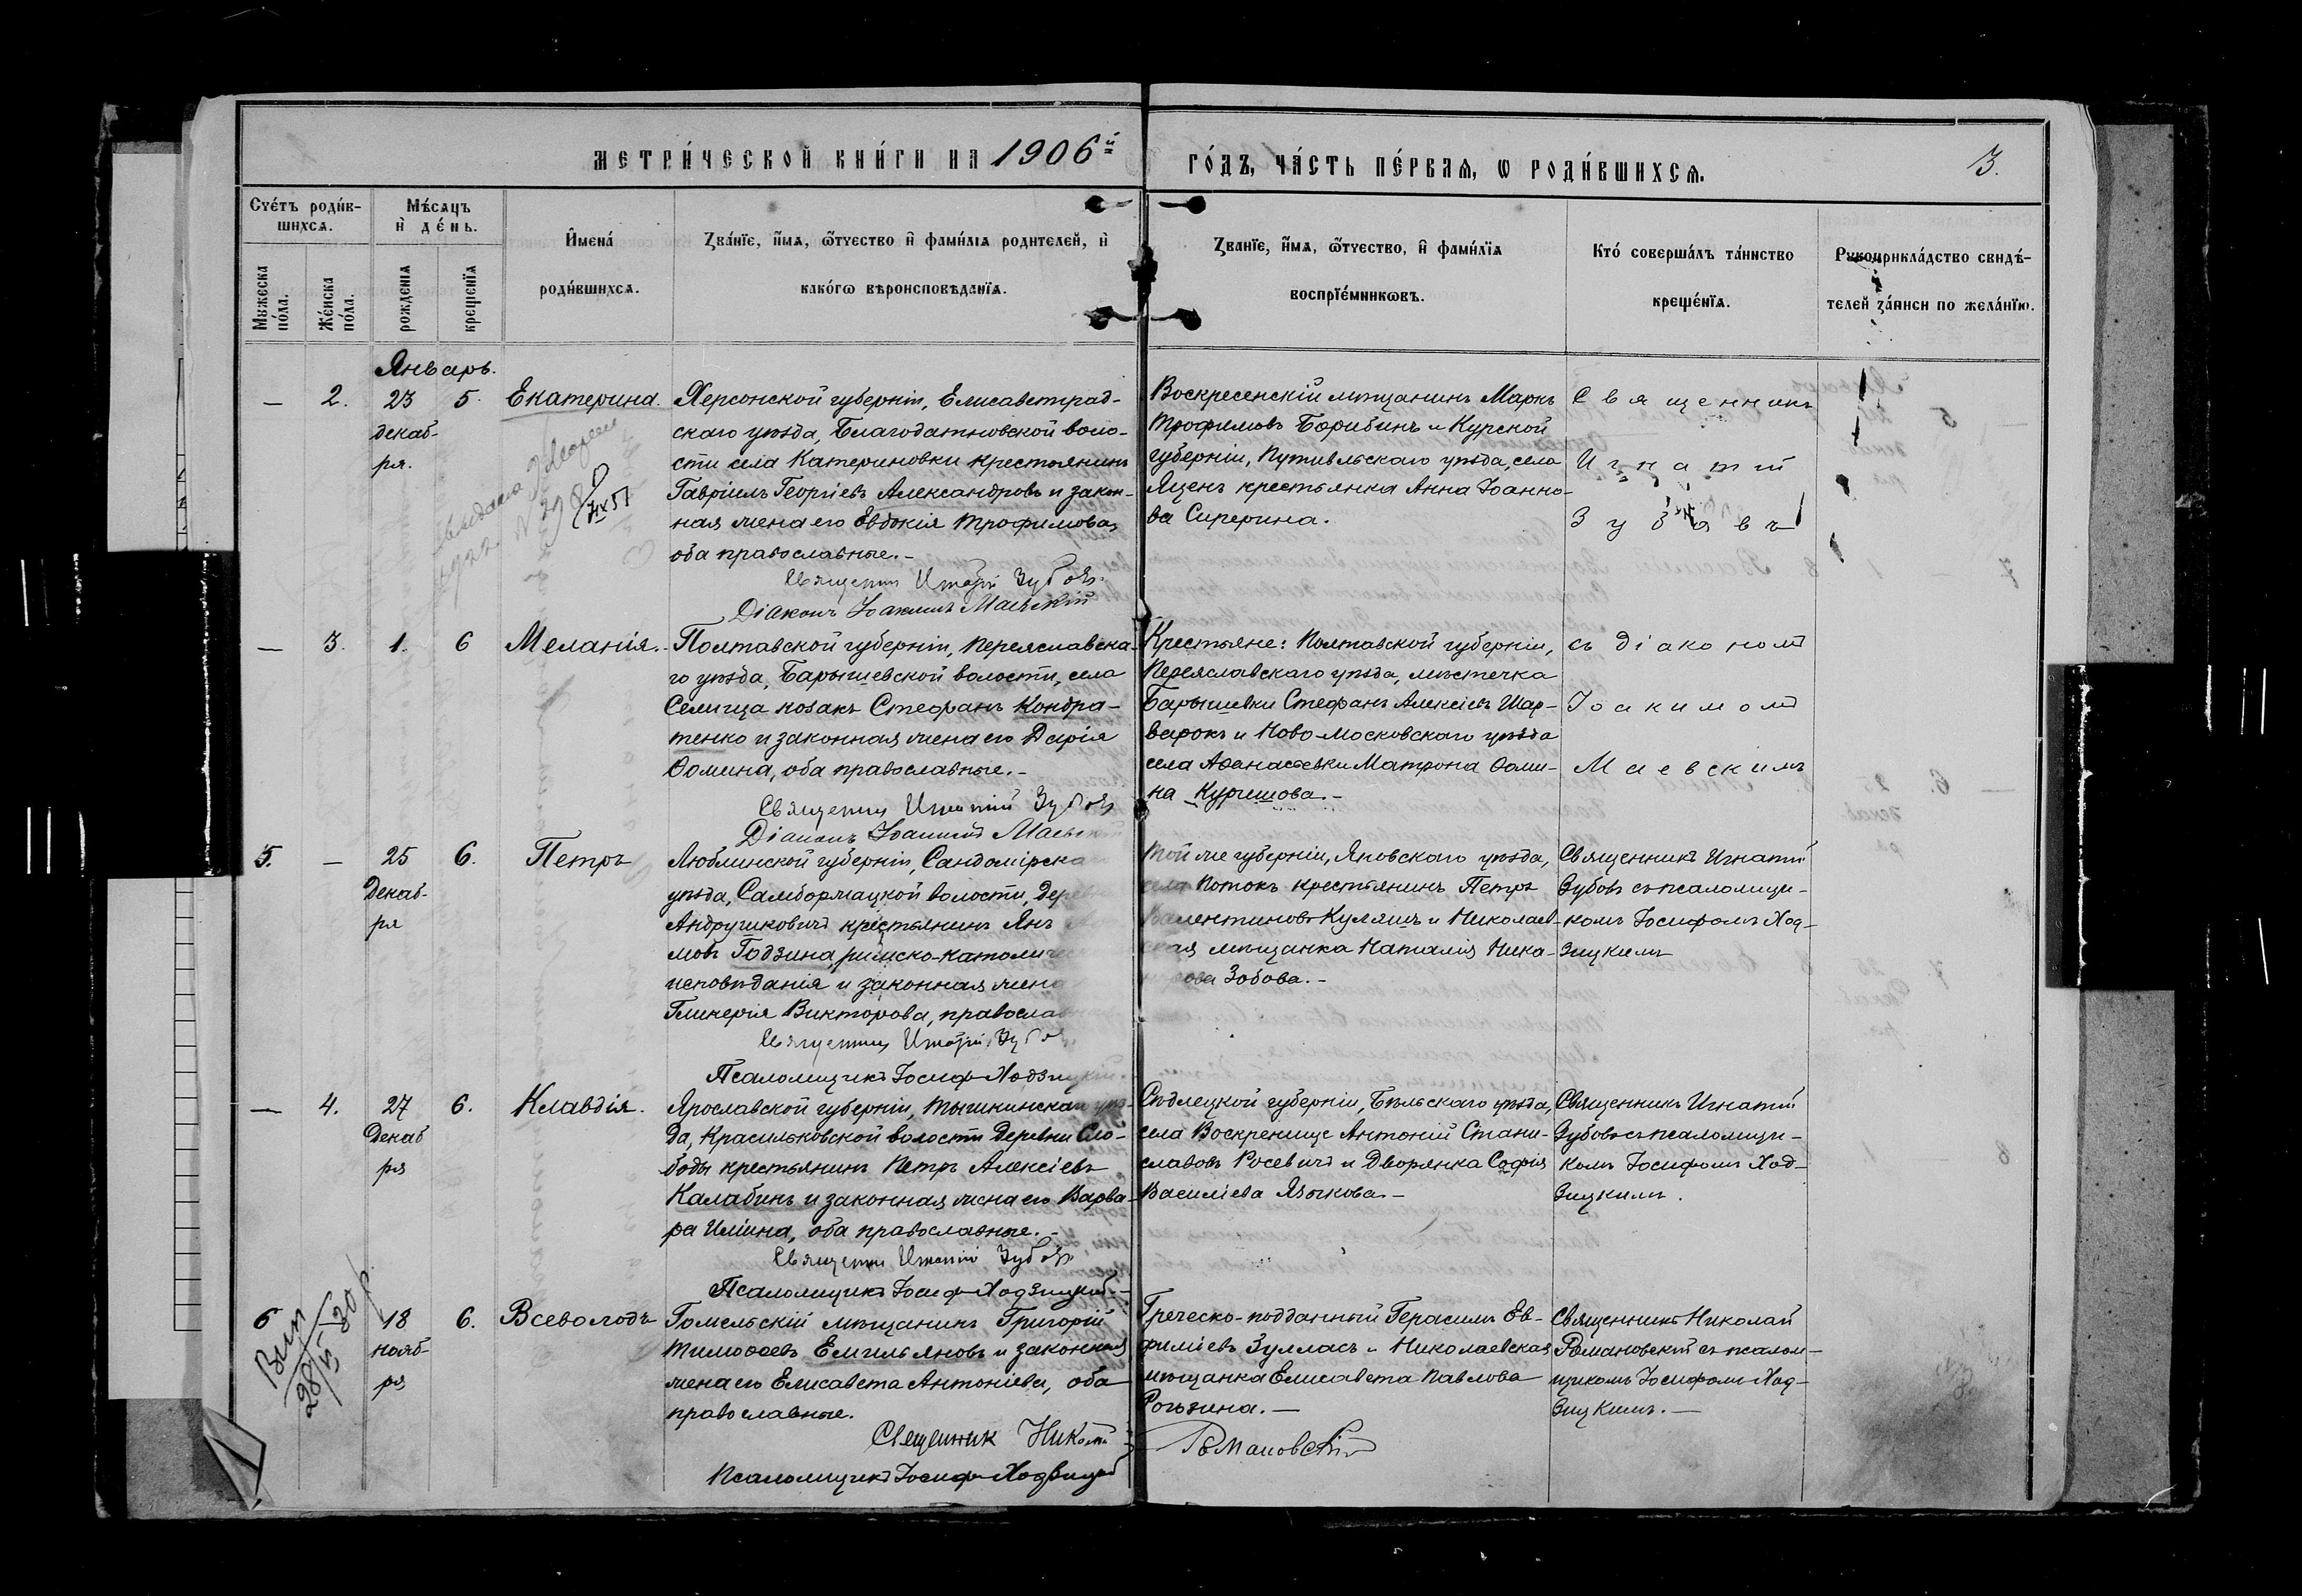 МЕТРИ́ЧЕСКОЙ КНИ́ГИ НА 1906й
ГО́ДЪ, ЧА́СТЬ ПЕ́РВАЯ, Ѡ РОДИ́ВШИХСЯ.
3.
Счéтъ роди́в-
шихсѧ.
Мѣ́сѧцъ
и҆ дéнь.
И҆менá
роди́вшихсѧ.
Звáнїе, и҆́мѧ, ѻ҆́тчество и҆ фами́лїѧ родителей, и҆
какóгѡ вѣроисповѣданїѧ.
Звáнїе, и҆́мѧ, ѻ҆́тчество, и҆ фами́лїѧ
воспрїéмникѡвъ.
Ктó совершáлъ тáинство
крещéнїѧ.
Рукоприклáдство свидѣ́-
телей зáписи по желáнїю.
Мужеска
пóла.
Жéнска
пóла.
рожденїѧ
крещенїѧ
Январь.
— 2. 23 5. Екатерина.
декаб-
ря.
Херсонской губерніи, Елисаветград-
скаго уѣзда, Благодатновской воло-
сти села Катериновки крестьянинъ
Гавріилъ Георгіевъ Александровъ и закон-
ная жена его Евдокія Трофимова,
оба православные.-
Священник Игнатій Зубовъ.
Діаконъ Іоакимъ Маевскій
Воскресенскій мѣщанинъ Маркъ
Трофимовъ Борибинъ и Курской
губерніи, Путивльскаго уѣзда, села
Яценъ крестьянка Анна Іоанно-
ва Сирерина.
Священникъ
Игнатій
Зубовъ
— 3. 1. 6 Меланія.
Полтавской губерніи, Переяславска-
го уѣзда, Барышевской волости, села
Селища козакъ Стефанъ Кондра-
тенко и законная жена его Дарія
Ѳомина, оба православные.-
Священник Игнатій Зубовъ
Діаконъ Іоакимъ Маевскій
Крестьяне: Полтавской губерніи,
Переяславскаго уѣзда, мѣстечка
Барышевки Стефанъ Алексіевъ Шар-
варокъ и Ново-Московскаго уѣзда
села Аѳанасьевки Матрона Ѳоми-
на Куришова.-
съ діакономъ
Іоакимомъ
Маевскимъ
5. — 25 6. Петръ
Декаб-
ря
Люблинской губерніи, Сандомірска
уѣзда, Самборжацкой волости, Дерев
Андрушковичъ крестьянинъ Янъ
мовъ Годзина, римско-католичес
исповѣданія и законная жена
Гликерія Викторова, православ
Священникъ Игнатій Зубо
Псаломщикъ Іосифъ Ходзицкій.
Той же губерніи, Яновскаго уѣзда,
села Потокъ крестьянинъ Петръ
Валентиновъ Куляшъ и Николаев-
ская мѣщанка Наталія Ника-
норова Зобова.-
Священникъ Игнатій
Зубовъ съ псаломщи-
комъ Іосифомъ Ход-
зицкимъ
— 4. 27 6. Клавдія.
Декаб
ря
Ярославской губерніи, Мышкинскаго уѣз-
да, Красильковской волости Деревни Сло-
боды крестьянинъ Петръ Алексіевъ
Калабинъ и законная жена его Варва-
ра Иліина, оба православные.-
Священникъ Игнатій Зубовъ
Псаломщикъ Іосифъ Ходзицкій.-
Сѣдлецкой губерніи, Бѣльскаго уѣзда,
села Воскренице Антоній Стани-
славовъ Росевичъ и Дворянка Софія
Василіева Языкова.-
Священникъ Игнатій
Зубовъ съ псаломщи-
комъ Іосифомъ Ход-
зицкимъ.
6 18 6. Всеволодъ
нояб-
ря
Гомельскій мѣщанинъ Григорій
Тимоѳеевъ Емильяновъ и законная
жена его Елисавета Антоніева, оба
православные.
Священник Николай
Романовскій
Псаломщикъ Іосифъ Ходзицкій
Греческо-подданный Герасимъ Ев-
фиміевъ Зулласъ и Николаевская
мѣщанка Елисавета Павлова
Рогозина.—
Священникъ Николай
Романовскій съ псалом-
щикомъ Іосифомъ Ход-
зицкимъ.—